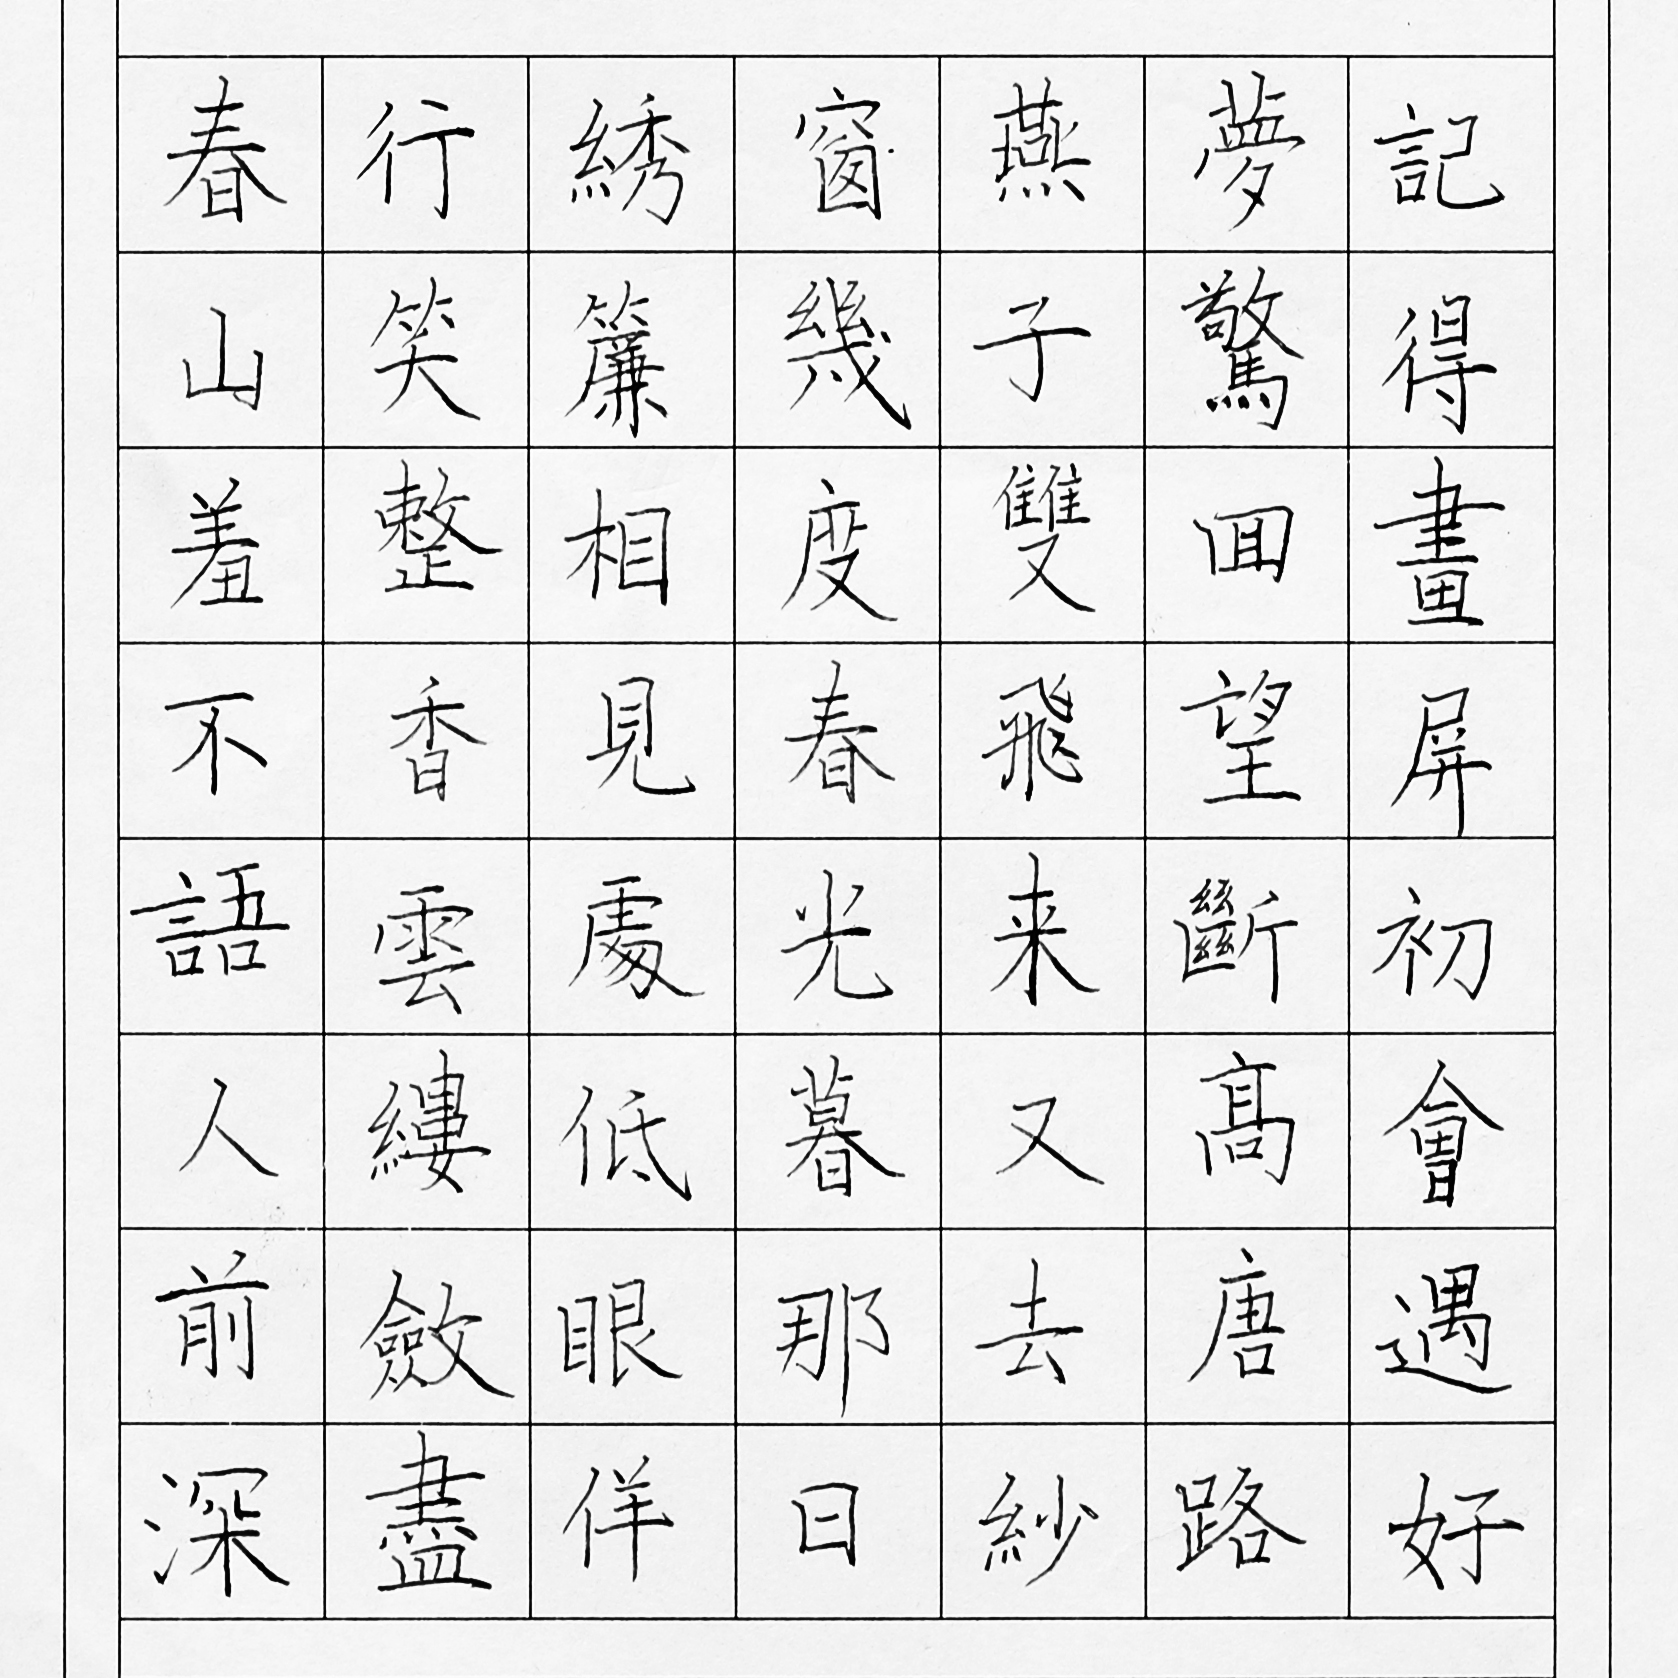 記得畫屏初會遇好
夢驚回望斷高唐路
燕子雙飛来又去紗
窗幾度春光暮那日
綉簾相見處低眼佯
行笑整香雲縷斂盡
春山羞不語人前深